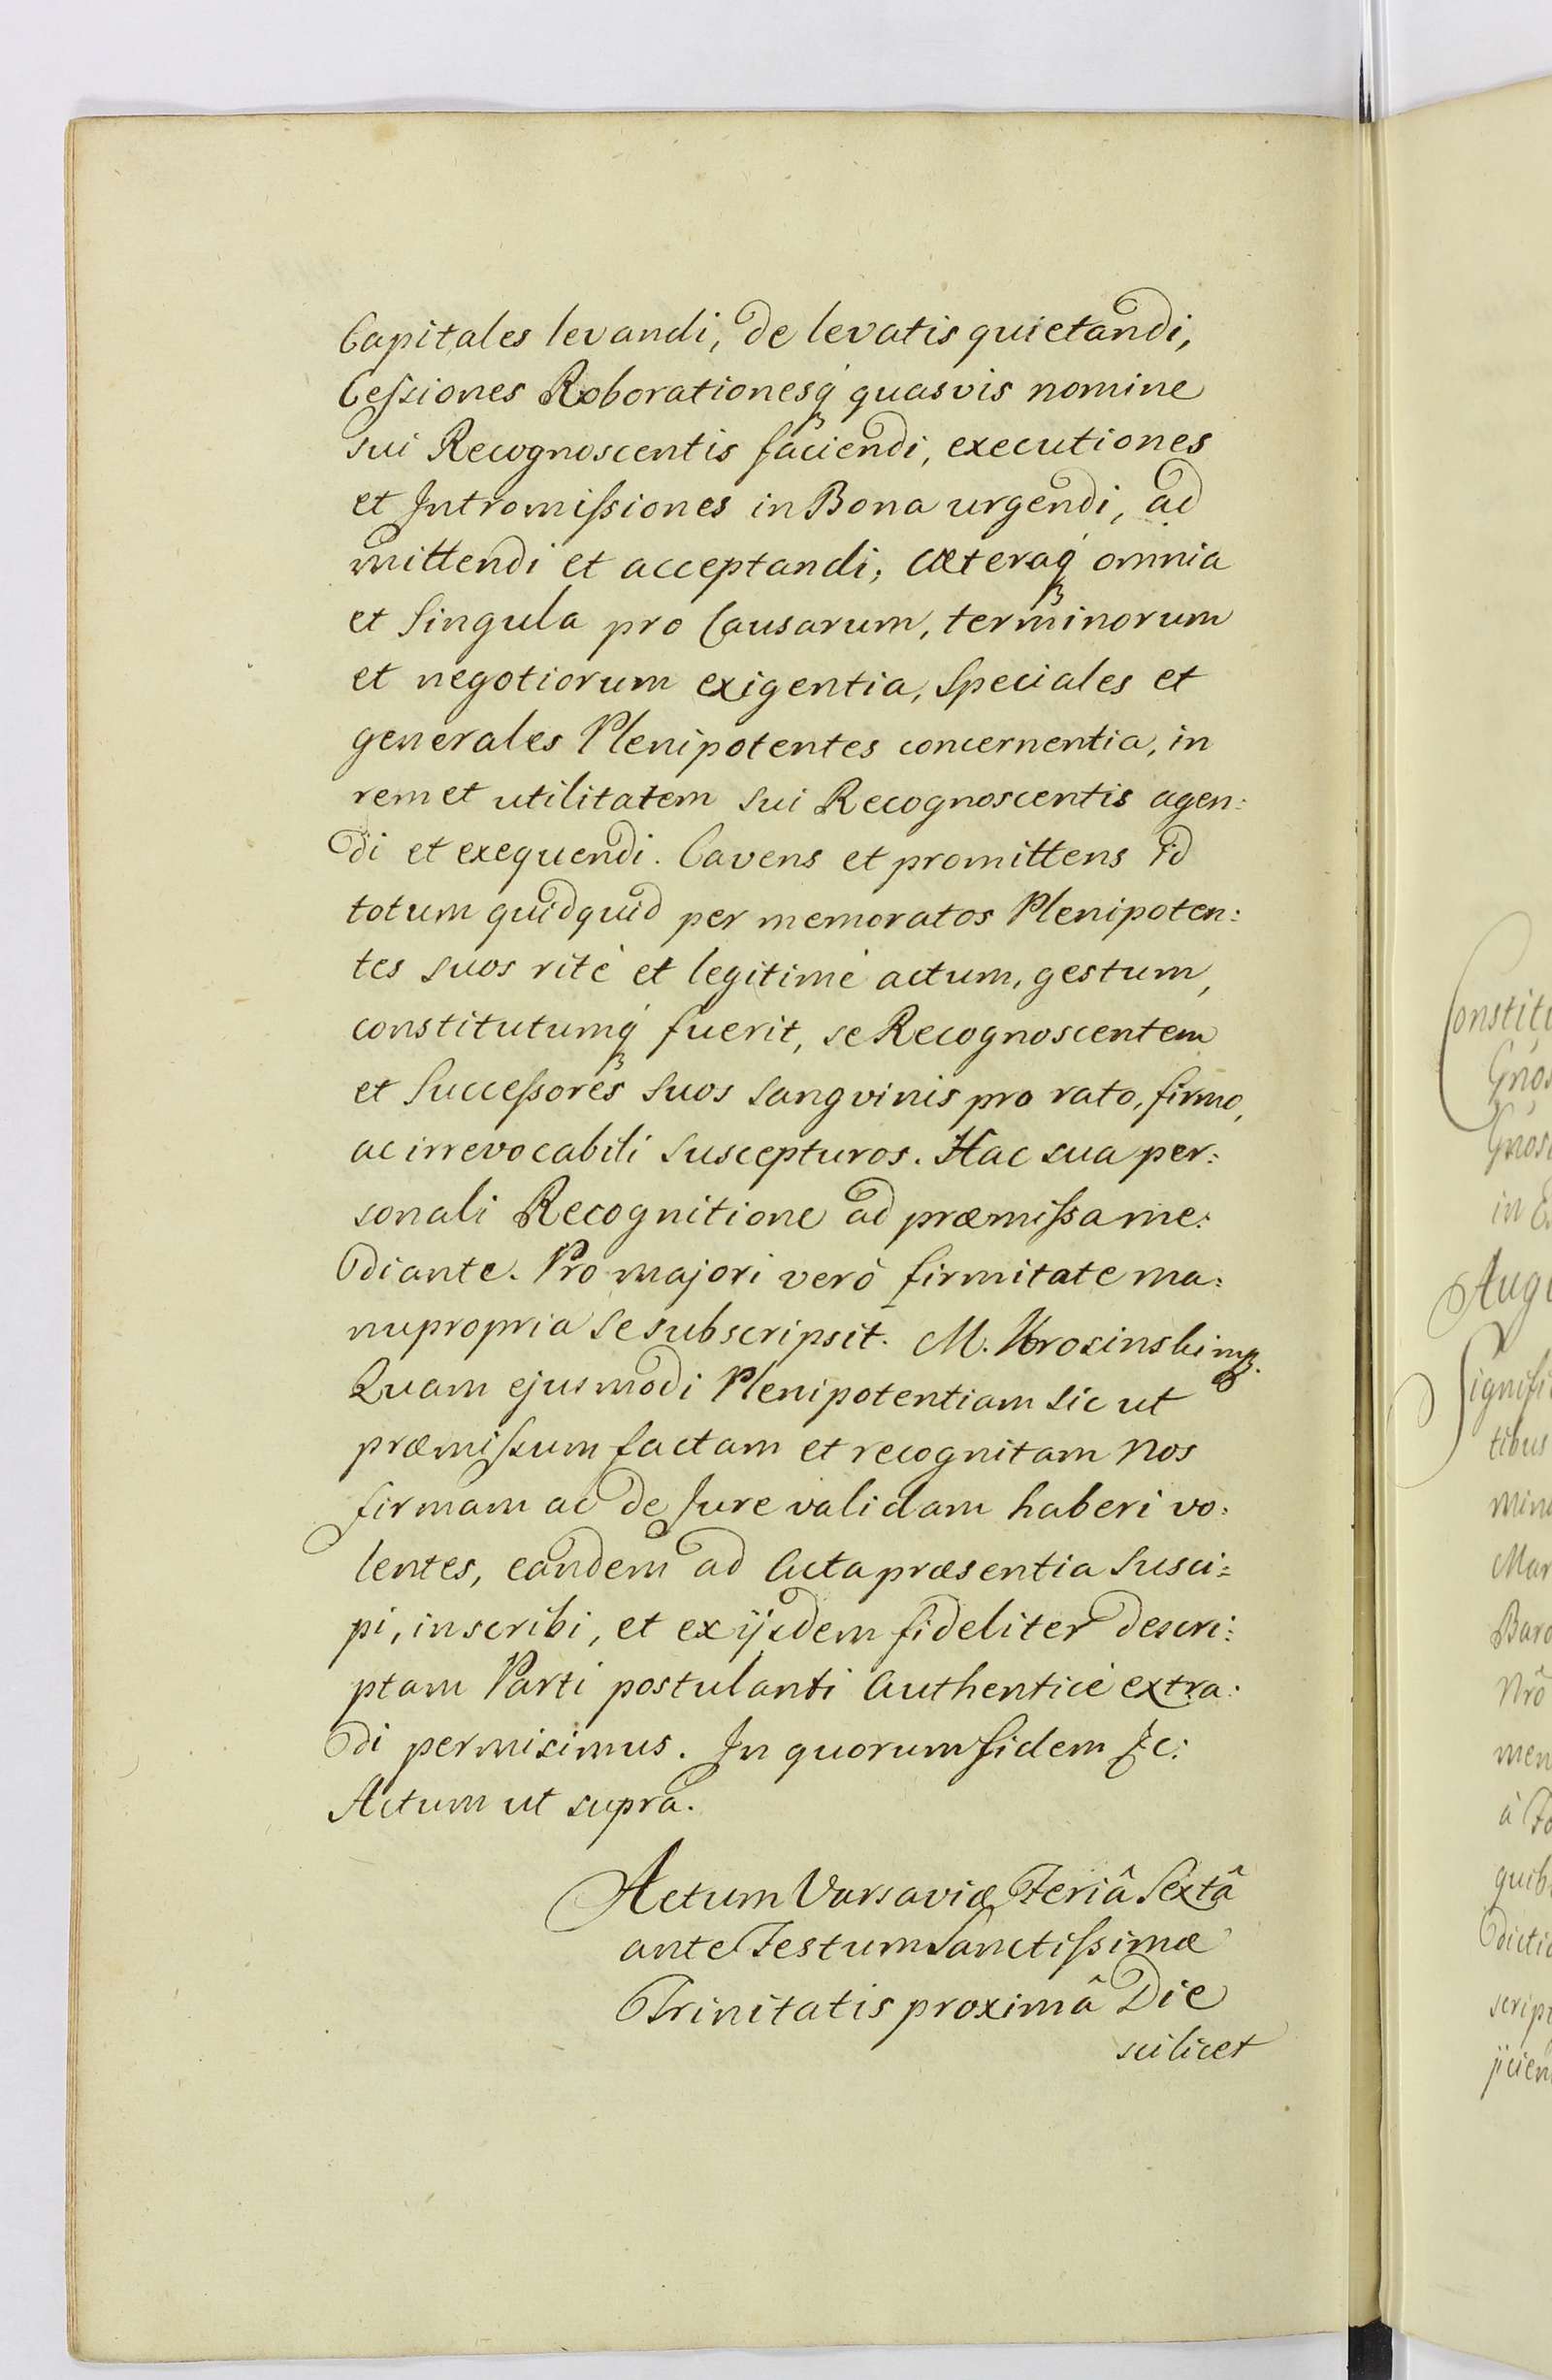 Capitales levandi, de levatis quietandi,
Cessiones Roborationesq́ quasvis nomine
sui Recognoscentis faciendi, executiones
et Intromissiones in Bona urgendi, ad
mittendi et acceptandi; Cæteraq́ omnia
et Singula pro Causarum, terminorum
et negotiorum exigentia, Speciales et
generales Plenipotentes concernentia, in
rem et utilitatem sui Recognoscentis agen:
di et exequendi. Cavens et promittens id
totum quidquid per memoratos Plenipoten:
tes suos ritè et legitimè actum, gestum,
constitutumq́ fuerit, se Recognoscentem
et Successores suos Sangvinis pro rato, firmo,
ac irrevocabili suscepturos. Hac sua per:
sonali Recognitione ad præmissa me:
diante. Pro majori verò firmitate ma:
nu propria se subscripsit. M. Krosinski mp.
Quam ejusmodi Plenipotentiam sic ut
præmissum factam et recognitam Nos
firmam ac de Jure validam haberi vo:
lentes, eandem ad Acta præsentia Susci:
pi, inscribi, et ex ijsdem fideliter descri:
ptam Parti postulanti Authenticè extra:
di permisimus. In quorum fidem &c:
Actum ut supra.
Actum Varsaviæ Feriâ Sextâ
ante Festum Sanctissimæ
Trinitatis proximâ Die
scilicet
Constitu
Gnos
Gnos
in
Augu
Signifi
tibus
min
Mar
Baro
Nrô
men
à
quib
dictio
script
jicien